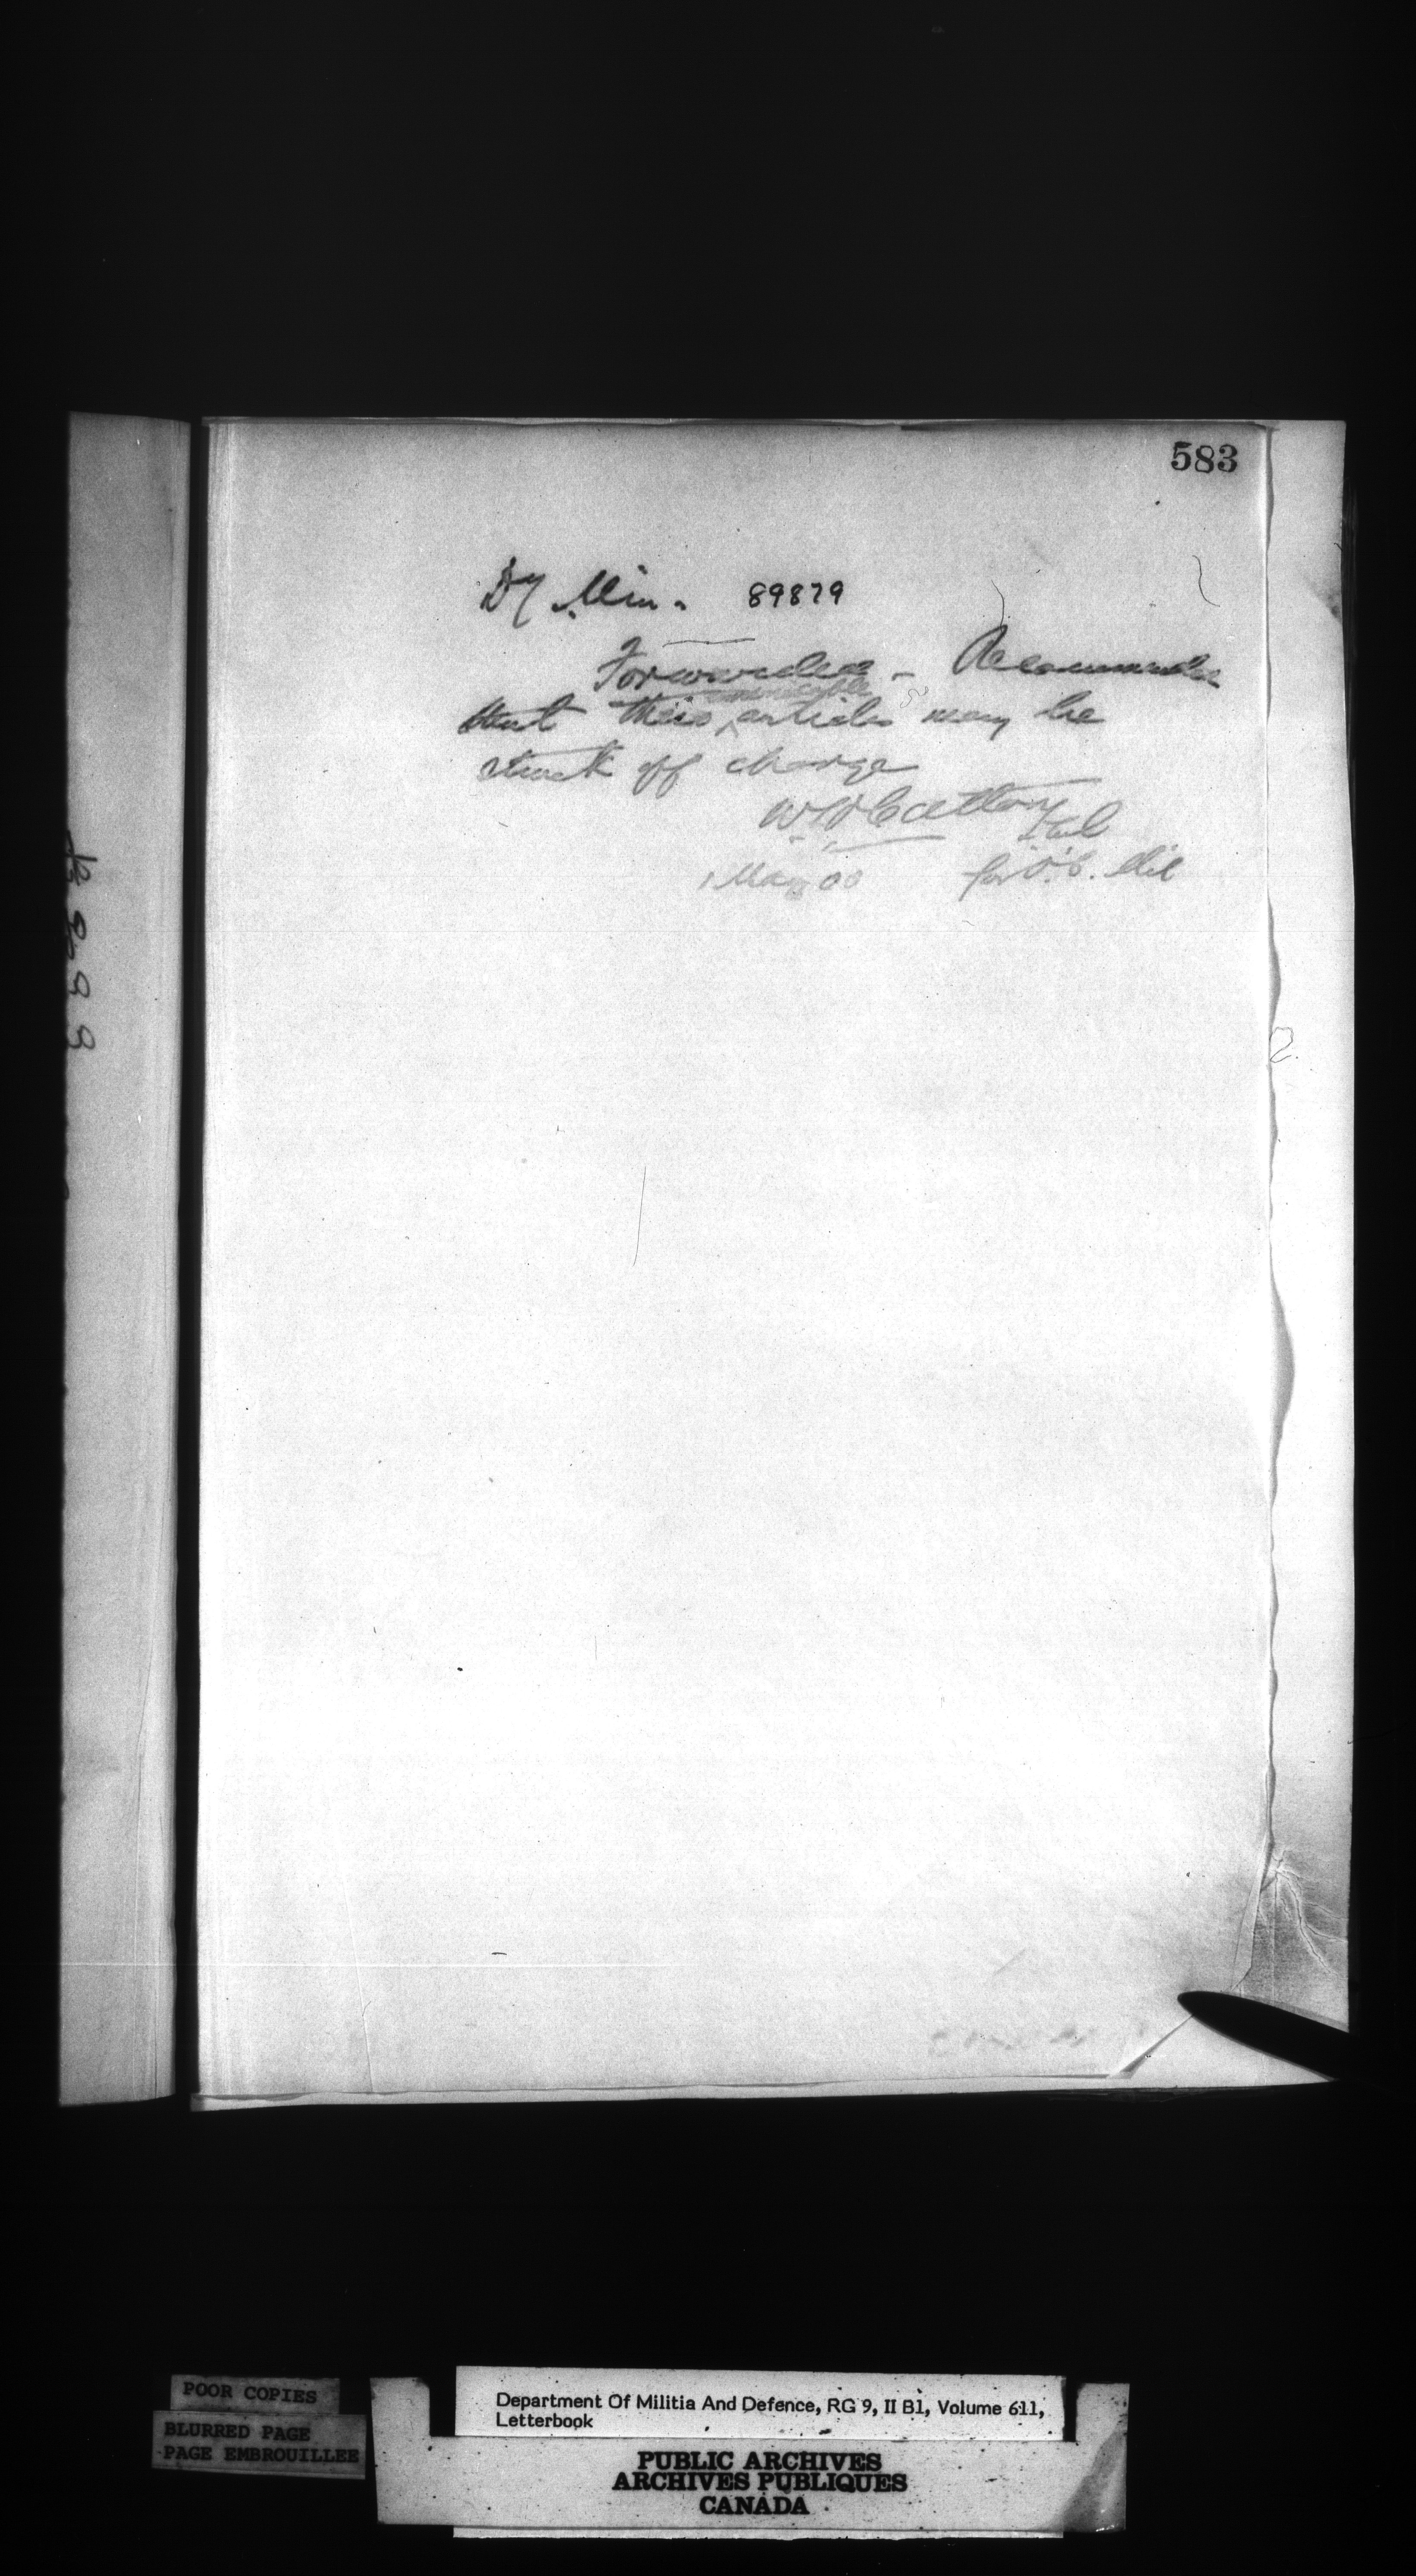 583
Dy Min. 89879
Forwarded - Recommended
that this articles may be
struck off charge
Lt Col
1 May 00 for O.C. Mil
POOR COPIES
BLURRED PAGE
PAGE EMBROUILLEE
Department Of Militia And Defence, RG 9, II B1, Volume 611,
Letterbook
PUBLIC ARCHIVES
ARCHIVES PUBLIQUES
CANADA